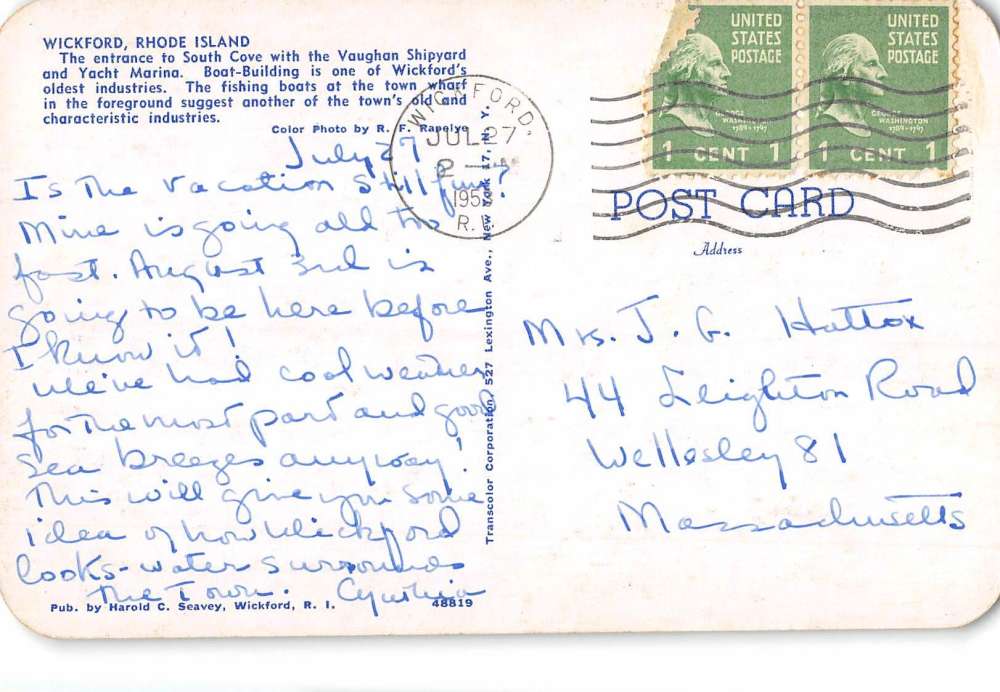 WICKFORD, RHODE ISLAND
The entrance to South Cove with the Vaughan Shipyard
and Yacht Marina. Boat-Building is one of Wickford's
oldest industries. The fishing boats at the town wharf
in the foreground suggest another of the town's old and
characteristic industries.
Color Photo by R. F. Rapelye
July 27
Is the vacation still fun?
Mine is going all too
fast. August 3rd is
going to be here before
I know it!
We've had cool weather
for the most part and good
sea breezes anyway!
This will give you some
idea of how Wickford
looks - water surrounds
the Town. Cynthia
Pub. by Harold C. Seavey, Wickford, R. I. 48819
Transcolor Corporation, 527 Lexington Ave., New York 17, N. Y.
WICKFORD.
JUL 27
2
R.
UNITED
STATES
POSTAGE
GEORGE
WASHINGTON
1789-1797
1 CENT 1
UNITED
STATES
POSTAGE
GEORGE
WASHINGTON
1789-1797
1 CENT 1
POST CARD
Address
Mrs. J. G. Hattox
44 Leighton Road
Wellesley 81
Massachusetts